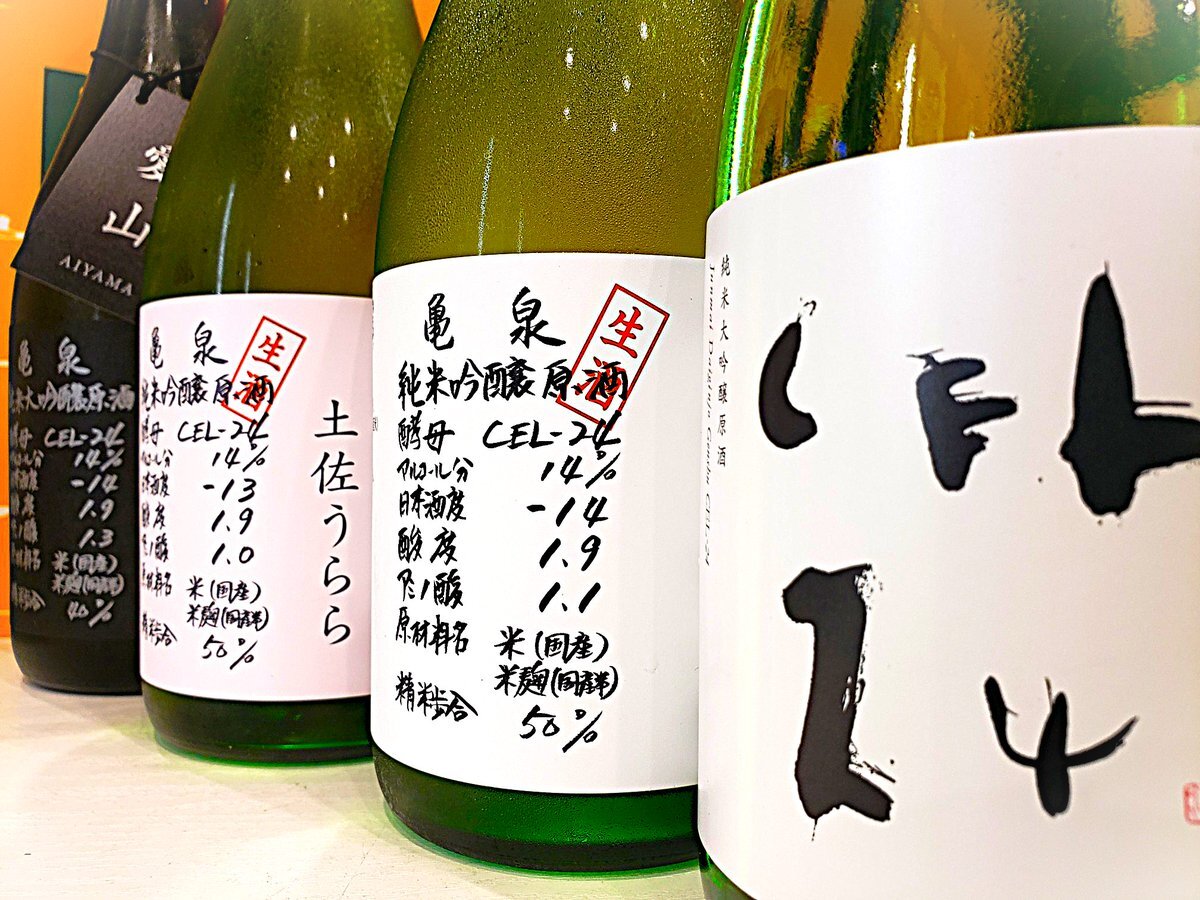 愛
山
AIYAMA
亀 泉
純米大吟醸原酒
酵母 CEL-24
アルコール分 14%
日本酒度 -14
酸度 1.9
アミノ酸 1.3
原材料名 米(国産)
米麹(国産米)
精米歩合 40%
生酒
亀 泉
純米吟醸原酒
酵母 CEL-24
アルコール分 14%
日本酒度 -13
酸度 1.9
アミノ酸 1.0
原材料名 米(国産)
米麹(国産米)
精米歩合 50%
土佐うらら
生酒
亀 泉
純米吟醸原酒
酵母 CEL-24
アルコール分 14%
日本酒度 -14
酸度 1.9
アミノ酸 1.1
原材料名 米(国産)
米麹(国産米)
精米歩合 50%
純米大吟醸原酒
Junmai Daiginjo Genshu CEL-24
CEL
24